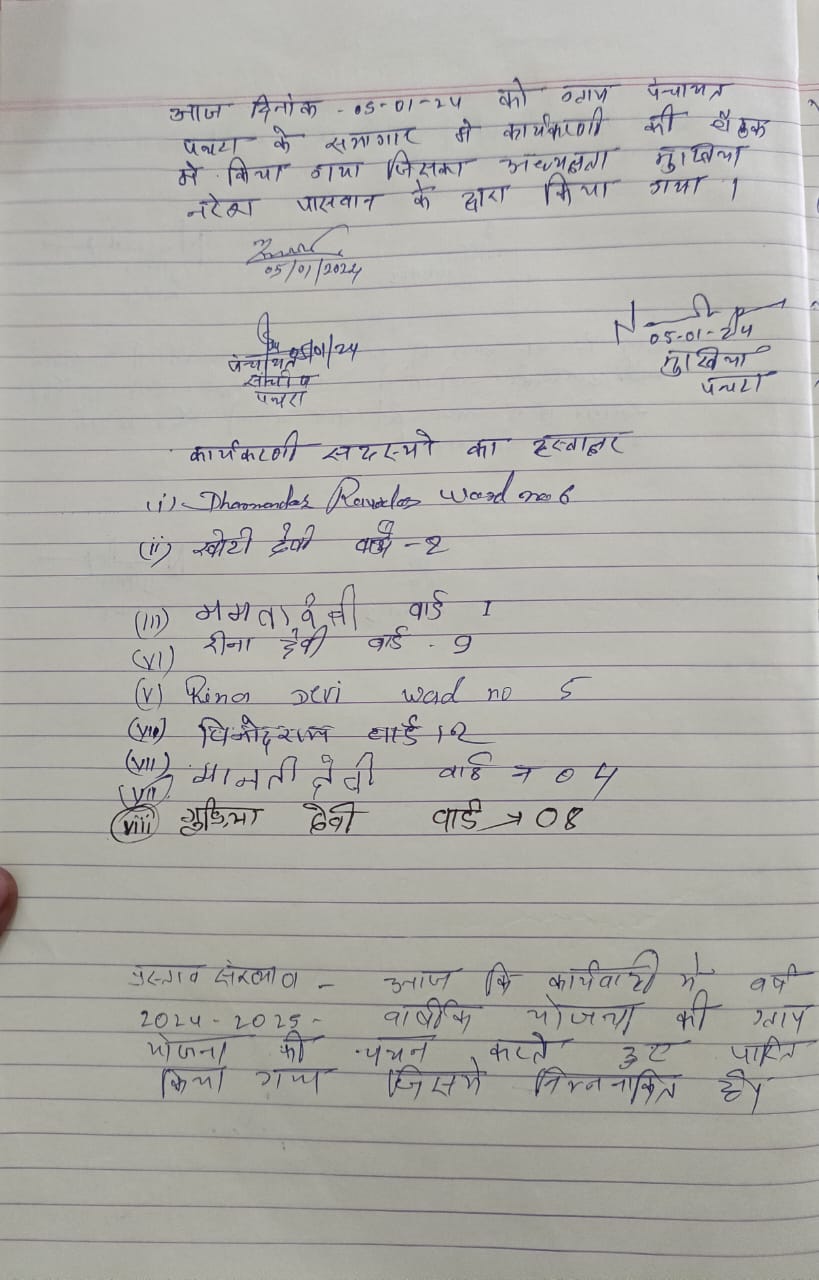 आज दिनांक - 05-01-24 को ग्राम पंचायत
पचरा के सभागार में कार्यकारणी की बैठक
में किया गया जिसका अध्यक्षता मुखिया
नरेश पासवान के द्वारा किया गया ।
05/01/2024
05/01/24
पंचायत
सचिव
पचरा
05-01-24
मुखिया
पचरा
कार्यकरणी सदस्यो का हस्ताक्षर
(i) Ward no 6
(ii) देवी वार्ड - 2
(III) ममता देवी वार्ड I
(VI) रीना देवी वार्ड - 9
(V) Rina Devi wad no 5
(VII) वार्ड 12
(VII) मानती देवी वार्ड → 04
(VII)
(viii) गुड़िया देवी वार्ड → 08
प्रस्ताव - आज कि कार्यवाही मे वर्ष
2024-2025- वार्षीक योजना की ग्राम
योजना की चयन करते हुए पारित
किया गया जिसमे निम्नांकित है।